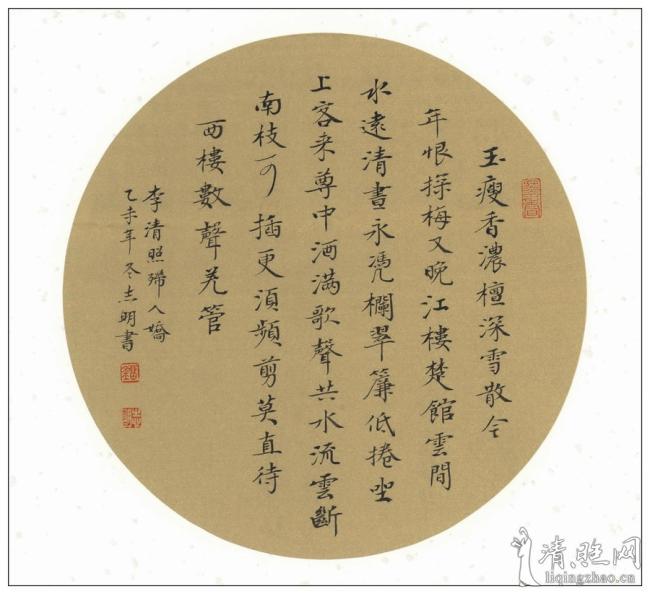 玉瘦香濃檀深雪散今
年恨探梅又晚江樓楚館雲間
水遠清晝永凴欄翠簾低捲坐
上客来尊中酒滿歌聲共水流雲斷
南枝可插更須頻剪莫直待
西樓數聲羌管
李清照殢人嬌
乙未年冬志明書
清照网
liqingzhao.cn